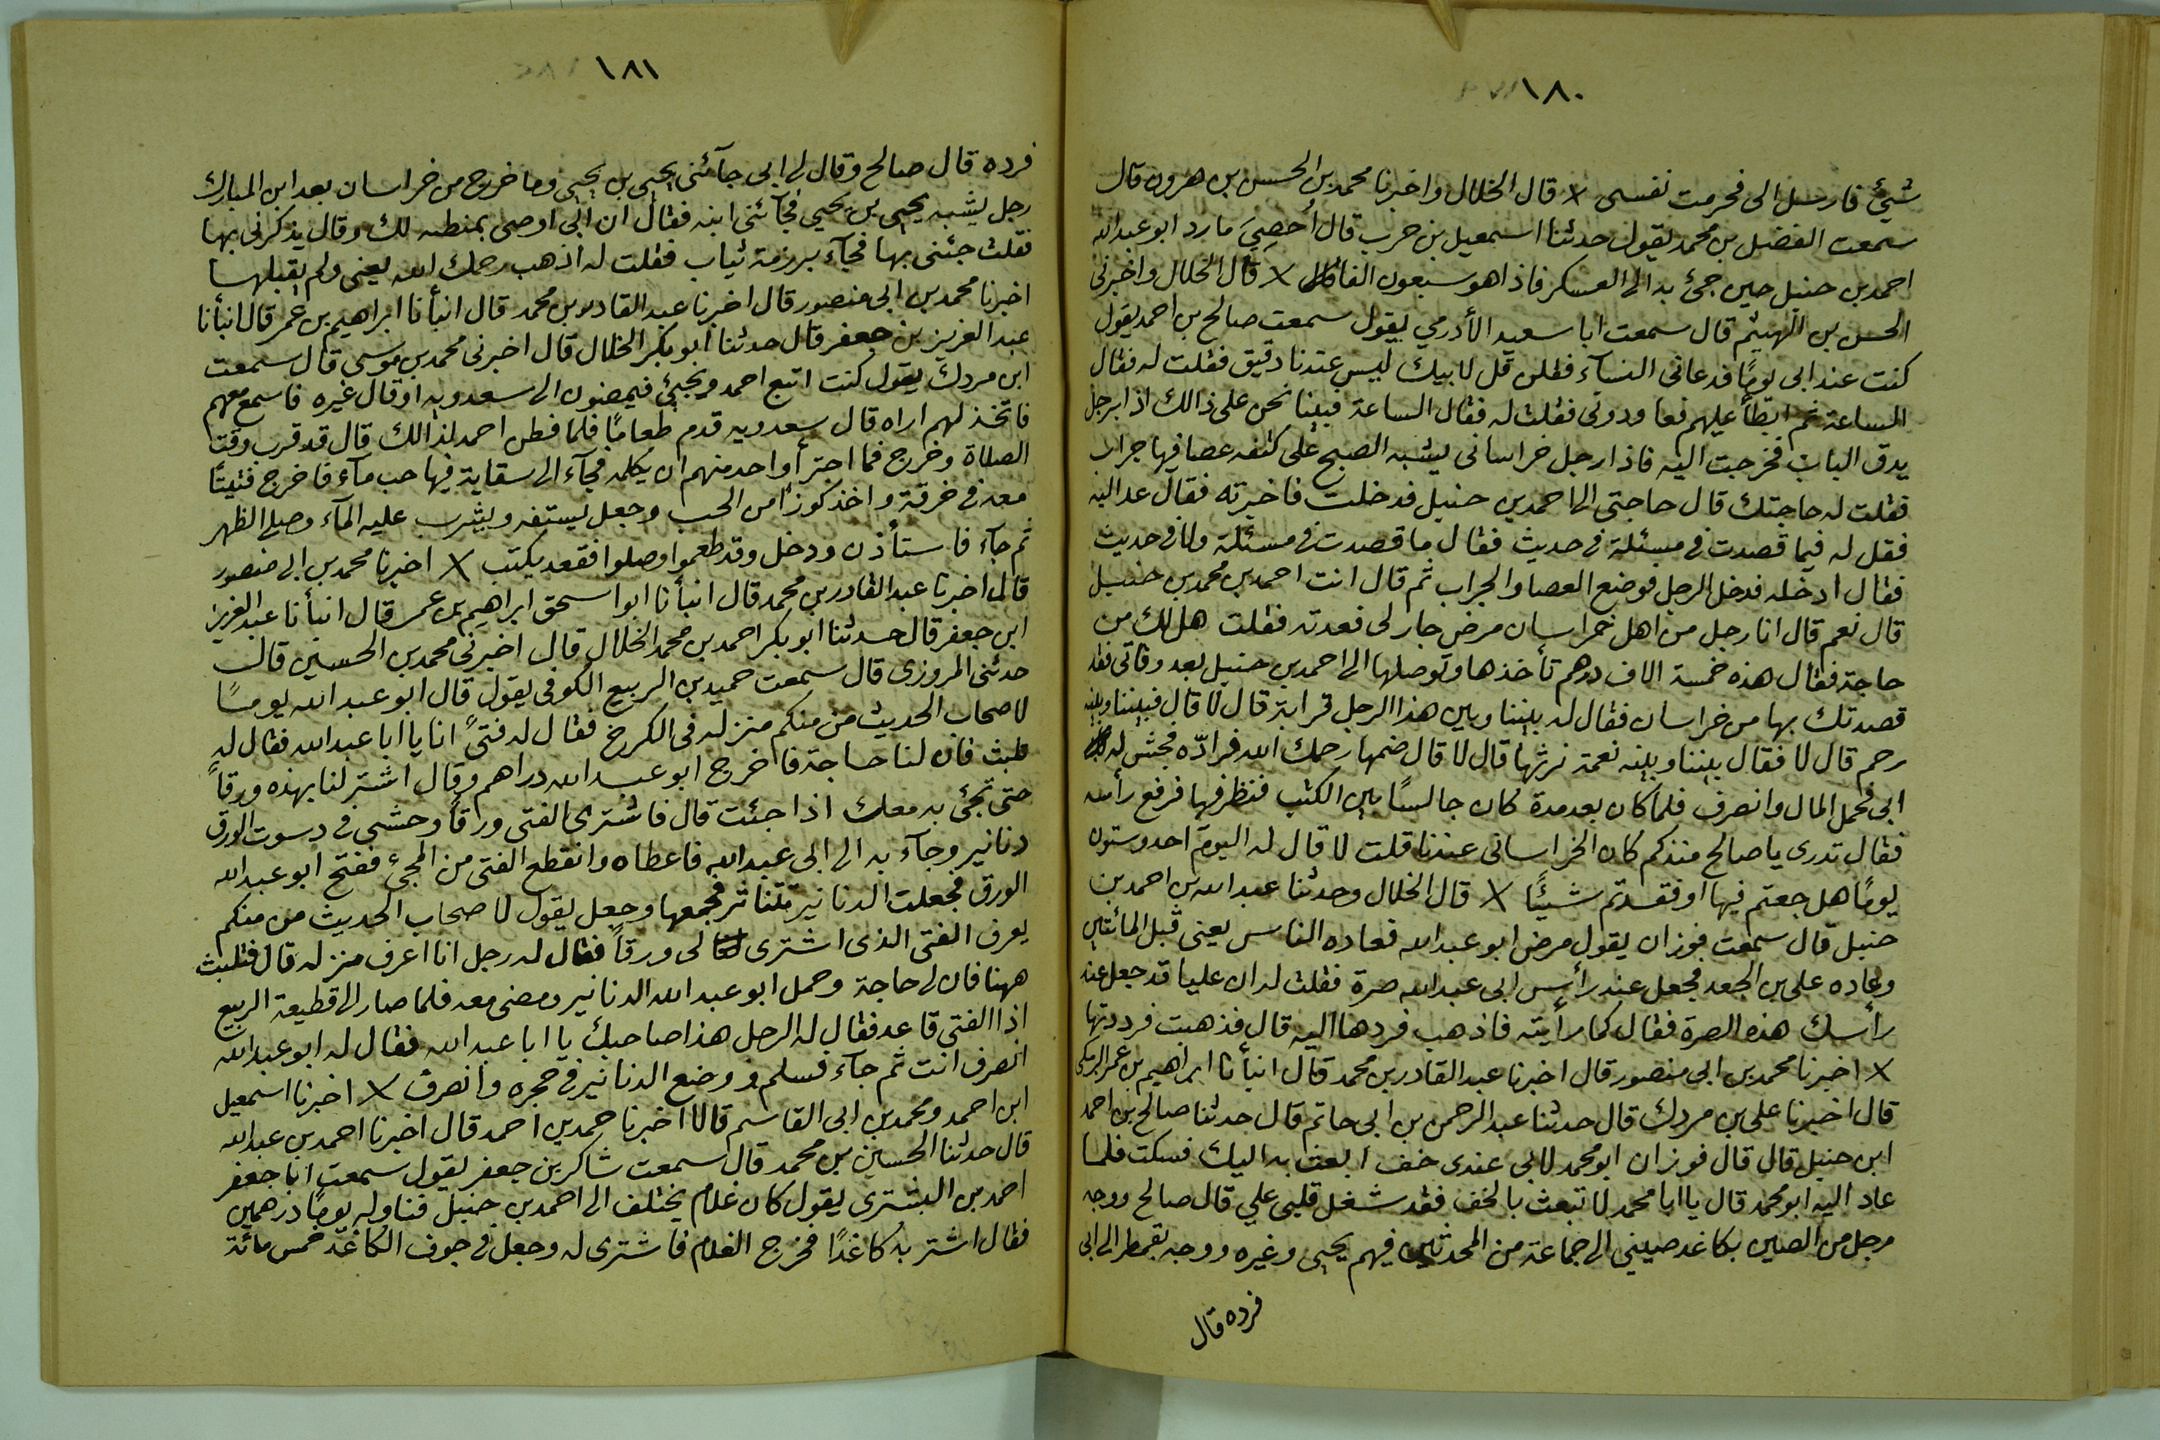 ١٨٠
شيئ فارسل الى فحرمت نفسى x قال الخلال واخبرنا محمد بن الحسن بن هرون قال
سمعت الفضل بن محمد يقول حدثنا اسمعيل بن حرب قال أُحصِيَ ما رد ابو عبدالله
احمد بن حنبل حين جئ به الى العسكر فاذا هو سبعون الفا x قال الخلال واخبرنى
الحسن بن الهيثم قال سمعت ابا سعيد الأدرمي يقول سمعت صالح بن احمد يقول
كنت عند ابى يومًا فدعانى النسآء فقلن قل لابيك ليس عندنا دقيق فقلت له فقال
الساعة ثم ابتطأ عليهم فعاودونى فقلت له فقال الساعة فبينا نحن على ذالك اذا برجل
يدق الباب فخرجت اليه فاذا رجل خراسانى يشبه الصبح على كتفه عصا فيها جراب
فقلت له حاجتك قال حاجتى الى احمد بن حنبل فدخلت فاخبرته فقال عد اليه
فقل له فيما قصدت فى مسئلة فى حديث فقال ما قصدت فى مسئلة ولا فى حديث
فقال ادخله فدخل الرجل فوضع العصا والجراب ثم قال انت احمد بن محمد بن حنبل
قال نعم قال انا رجل من اهل خراسان مرض جار لى فعدته فقلت هل لك من
حاجة فقال هذه خمسة الاف درهم تأخذها وتوصلها الى احمد بن حنبل بعد وفاتى فقد
قصدتك بها من خراسان فقال له بيننا وبين هذا الرجل قرابة قال لا قال فبيننا وبينه
رحم قال لا فقال بيننا وبينه نعمة نرثها قال لا قال ضمها رحمك الله فرادّه فجشى له
ابى فحمل المال وانصرف فلما كان بعد مدة كان جالسًا بين الكتب فنظر فيها فرفع رأسه
فقال تدرى يا صالح منذ كم كان الخراسانى عندنا قلت لا قال له اليوم احد وستون
يومًا هل جعتم فيها او فقدتم شيئًا x قال الخلال وحدثنا عبد الله بن احمد بن
حنبل قال سمعت فوزان يقول مرض ابو عبد الله فعاده الناس يعنى قبل المائتين
وعاده على بن الجعد فجعل عند رأس ابى عبد الله صرة فقلت له ان عليا قد جعل عند
رأسك هذه الصرة فقال كما رأيته فاذهب فردها اليه قال فذهبت فرددتها
x اخبرنا محمد بن ابى منصور قال اخبرنا عبد القادر بن محمد قال انبأنا ابراهيم بن عمر البرمكى
قال اخبرنا على بن مردك قال حدثنا عبد الرحمن بن ابى حاتم قال حدثنا صالح بن احمد
ابن حنبل قال قال فوزان ابو محمد لابى عندى خف ابعث به اليك فسكت فلما
عاد اليه ابو محمد قال يا ابا محمد لا تبعث بالخف فقد شغل قلبى علي قال صالح ووجه
رجل من الصين بكاغد صينى الى جماعة من المحدثين فيهم يحيى وغيره ووجه بقمطر الى ابى
فرده قال
١٨١
فرده قال صالح وقال لى ابى جآئنى يحيى بن يحيى وما خرج من خراسان بعد ابن المبارك
رجل يشبه يحيى بن يحيى فجآئنى ابنه فقال ان ابى اوصى بمنطه لك وقال يذكرنى بها
فقلت جئنى بها فجآء برزمة ثياب فقلت له اذهب رحمك الله يعنى ولم يقبلها
اخبرنا محمد بن ابى منصور قال اخبرنا عبد القادر بن محمد قال انبأنا ابراهيم بن عمر قال انبأنا
عبد العزيز بن جعفر قال حدثنا ابو بكر الخلال قال اخبرنى محمد بن موسى قال سمعت
ابن مردك يقول كنت اتبع احمد ويجيئ فيمضون الى سعدويه او قال غيره فاسمع معهم
فاتخذ لهم اراه قال سعدويه قدم طعامًا فلما فطن احمد لذالك قال قد قرب وقت
الصلاة وخرج فما اجترأ واحد منهم ان يكلمه فجآء الى سقاية فيها حب مآء فاخرج فتيتًا
معه فى خرقة واخذ كوزًا من الحب وجعل يستفه ويشرب عليه المآء وصلى الظهر
ثم جآء فاستأذن ودخل وقد طعموا وصلوا فقعد يكتب x اخبرنا محمد بن ابى منصور
قال اخبرنا عبد القادر بن محمد قال انبأنا ابو اسحق ابراهيم بن عمر قال انبأنا عبد العزيز
ابن جعفر قال حدثنا ابو بكر احمد بن محمد الخلال قال اخبرنى محمد بن الحسين قال
حدثنى المروزى قال سمعت حميد بن الربيع الكوفى يقول قال ابو عبد الله يومًا
لاصحاب الحديث من منكم منزله فى الكرخ فقال له فتىً انا يا ابا عبد الله فقال له
تلبث فان لنا حاجة فاخرج ابو عبد الله دراهم وقال اشتر لنا بهذه ورقاً
حتى تجئ به معك اذا جئت قال فاشترى الفتى ورقاً وحشى فى دسوت الورق
دنانير وجآء به الى ابى عبد الله فاعطاه وانقطع الفتى من المجئ ففتح ابو عبد الله
الورق فجعلت الدنانير تتناثر فجمعها وجعل يقول لاصحاب الحديث من منكم
يعرف الفتى الذى اشترى لى ورقاً فقال له رجل انا اعرف منزله قال فتلبث
ههنا فان لى حاجة وحمل ابو عبد الله الدنانير ومضى معه فلما صار الى قطيعة الربيع
اذا الفتى قاعد فقال له الرجل هذا صاحبك يا ابا عبد الله فقال له ابو عبد الله
انصرف انت ثم جآء فسلم ووضع الدنانير فى حجره وانصرف x اخبرنا اسمعيل
ابن احمد ومحمد بن ابى القاسم قالا اخبرنا حمد بن احمد قال اخبرنا احمد بن عبد الله
قال حدثنا الحسين بن محمد قال سمعت شاكر بن جعفر يقول سمعت ابا جعفر
احمد بن التسترى يقول كان غلام يختلف الى احمد بن حنبل فناوله يومًا درهمين
فقال اشتر به كاغدًا فخرج الغلام فاشترى له وجعل فى جوف الكاغد خمس مائة